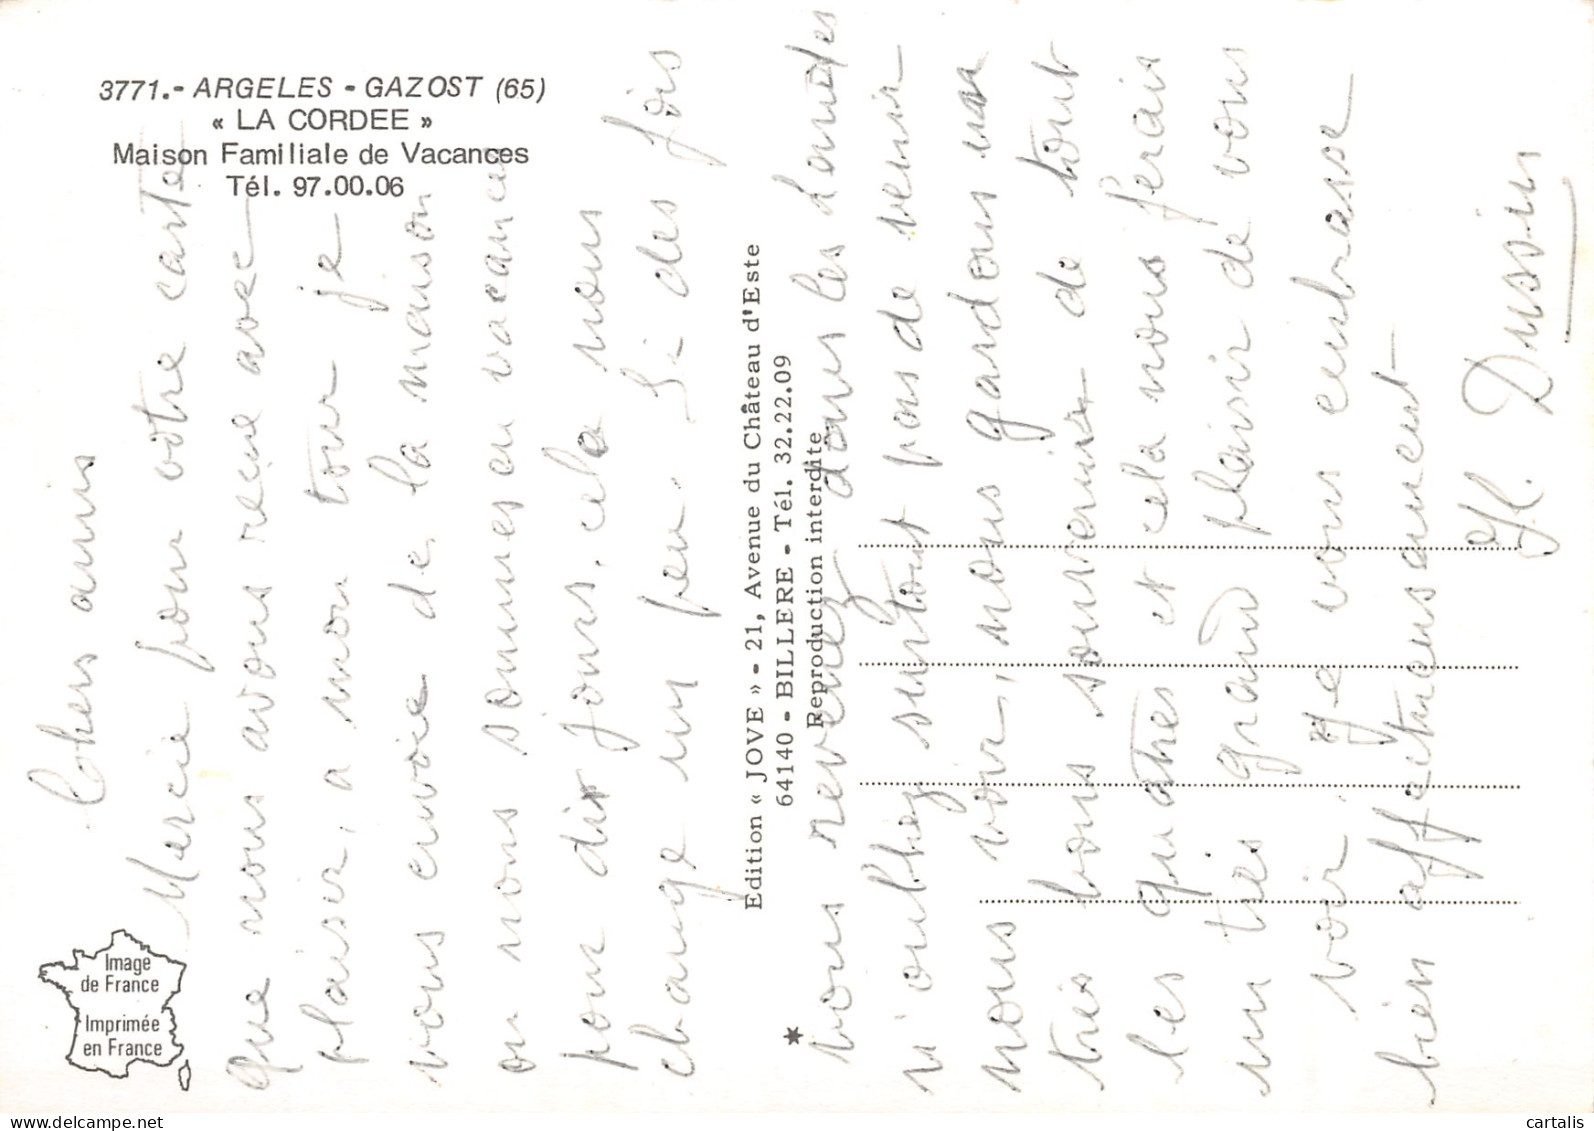 3771.- ARGELES - GAZOST (65)
« LA CORDEE »
Maison Familiale de Vacances
Tél. 97.00.06
Image
de France
Imprimée
en France
Edition « JOVE » - 21, Avenue du Château d'Este
64140 - BILLERE - Tél. 32.22.09
Reproduction interdite
Chers amis
Mercie pour votre carte
que nous avons reçue avec
plaisir, a mon tour je
vous envoie de la maison
ou nous sommes en vacances
pour dix jours, cela nous
change un peu. Si des fois
vous revenez dans les Landes
n'oubliez surtout pas de venir
nous voir, nous gardons un
très bons souvenir de tout
les quatres et cela nous ferais
un très grand plaisir de vous
voir. Je vous embrasse
bien affectueusement
H. Dussin
cartalis